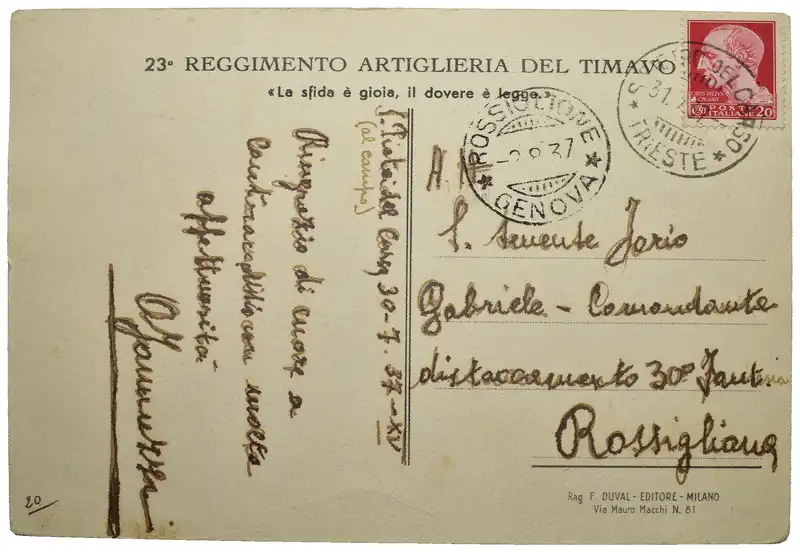 23° REGGIMENTO ARTIGLIERIA DEL TIMAVO
«La sfida è gioia, il dovere è legge.»
POSTE
ITALIANE 20
S. PIETRO DEL CARSO
31.7
* TRIESTE *
* ROSSIGLIONE *
-2.8.37
GENOVA
S. Pietro del Carso 30-7.37-XV
(al campo)
Ringrazio di cuore e
contraccambio con molta
affettuosità
S. tenente Jorio
Gabriele - Comandante
distaccamento 30° Fanteria
Rossigliana
Rag F. DUVAL - EDITORE - MILANO
Via Mauro Macchi N. 81
20